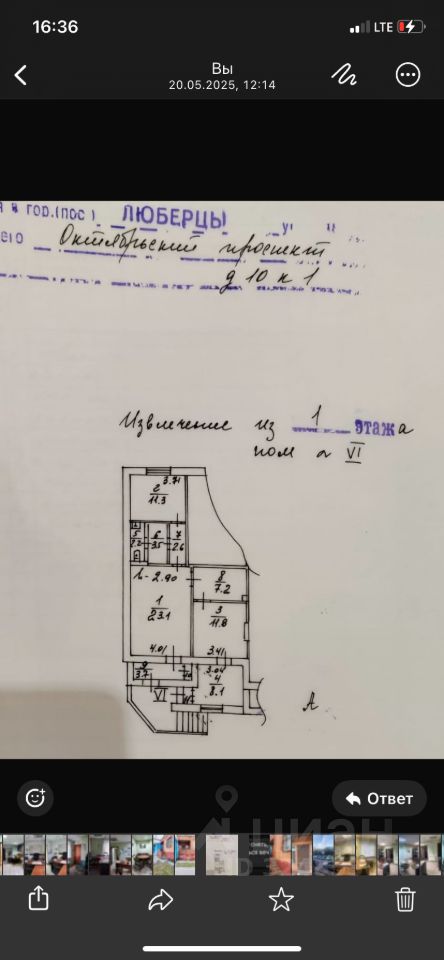 16:36
LTE
Вы
20.05.2025, 12:14
в гор.(пос.) ЛЮБЕРЦЫ
Октябрьский проспект
д 10 к 1
Извлечение из 1 этажа
пом а VI
3.71
2
11.3
5
2.2
6
3.5
7
2.6
h-2.90
8
7.2
1
23.1
3
11.8
4.01
3.41
9
3.7
3.04
4
8.1
VI
А
Ответ
циан